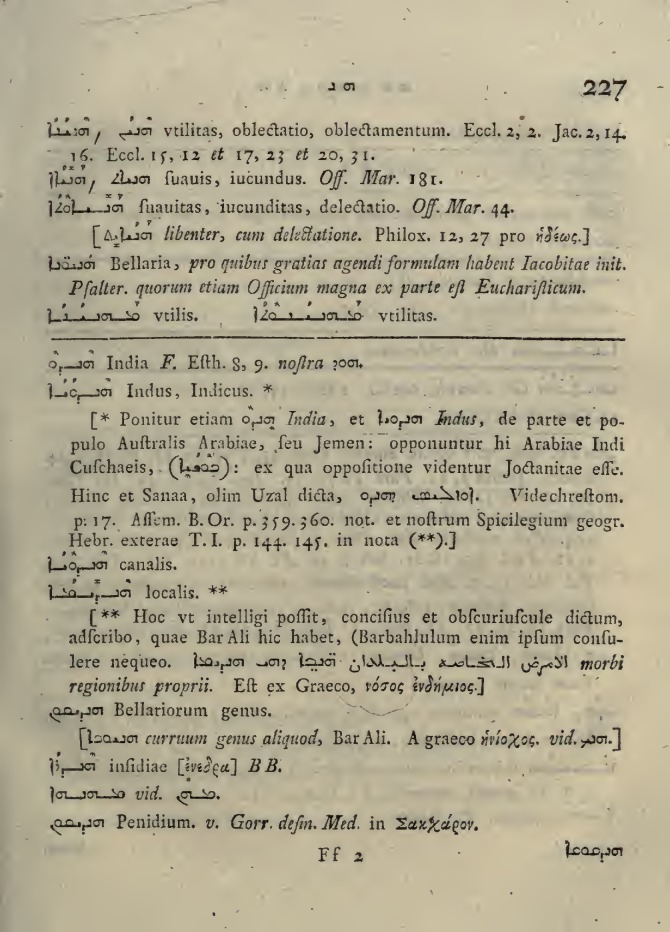 ܗܢ 227
ܗܢܝܐܐ, ܗܢܝ vtilitas, oblectatio, oblectamentum. Eccl. 2, 2. Jac. 2, 14.
16. Eccl. 15, 12 et 17, 23 et 20, 31.
ſuauis, iucundus. Off. Mar. 181.
ſuauitas, iucunditas, delectatio. Off. Mar. 44.
[ܗܢܝܐܝܬ libenter, cum delectatione. Philox. 12, 27 pro ἡδέως.]
Bellaria, pro quibus gratias agendi formulam habent Iacobitae init.
Pſalter. quorum etiam Officium magna ex parte eſt Euchariſticum.
vtilis. vtilitas.
ܗܢܕܘ India F. Eſth. 8, 9. noſtra ܗܘܕ.
ܗܢܕܘܝܐ Indus, Indicus. *
[* Ponitur etiam ܗܢܕܘ India, et ܗܢܕܘܝܐ Indus, de parte et po-
pulo Auſtralis Arabiae, ſeu Jemen: opponuntur hi Arabiae Indi
Cuſchaeis, (ܟܘܫܝܐ): ex qua oppoſitione videntur Joctanitae eſſe.
Hinc et Sanaa, olim Uzal dicta, ܐܘܙܠ ܕܗܢܕܘ. Vide chreſtom.
p. 17. Aſſem. B. Or. p. 359. 360. not. et noſtrum Spicilegium geogr.
Hebr. exterae T. I. p. 144. 145. in nota (**).]
canalis.
localis. **
[** Hoc vt intelligi poſſit, conciſius et obſcuriuſcule dictum,
adſcribo, quae Bar Ali hic habet, (Barbahlulum enim ipſum conſu-
lere nequeo. الامرض الخاصة بالبلدان morbi
regionibus proprii. Eſt ex Graeco, νόσος ἐνδήμιος.]
Bellariorum genus.
[ܗܢܝܘܟܐ curruum genus aliquod, Bar Ali. A graeco ἡνίοχος. vid.]
ܗܢܕܪܐ inſidiae [ἐνέδρα] B B.
vid.
Penidium. v. Gorr. defin. Med. in Σακχάρον.
Ff 2